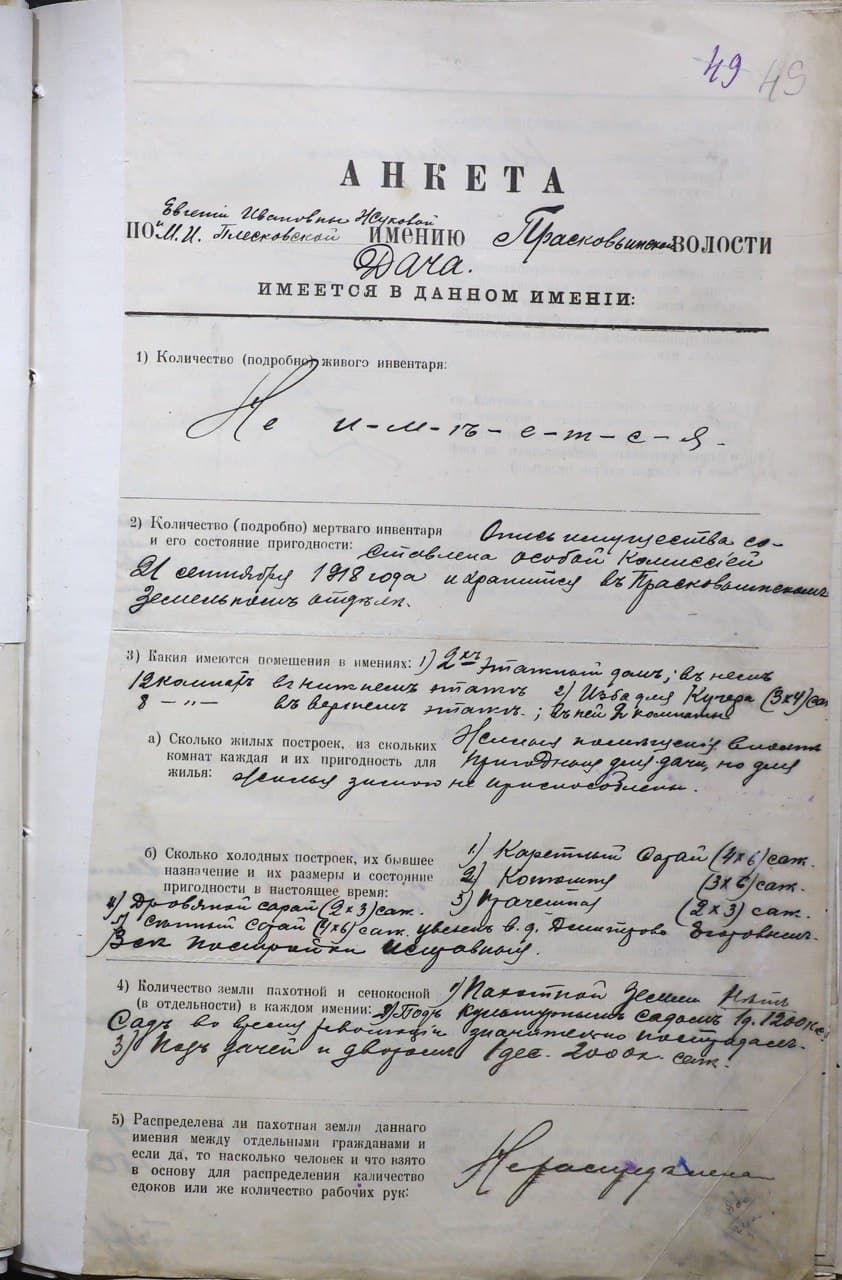 49 49
АНКЕТА
Евгеніи Ивановны Жуковой
ПО "М.И. Плесковской ИМЕНИЮ Прасковьинской ВОЛОСТИ
Дача.
ИМЕЕТСЯ В ДАННОМ ИМЕНІИ:
1) Количество (подробно) живого инвентаря:
Не и-м-ѣ-е-т-с-я-
2) Количество (подробно) мертваго инвентаря Опись имущества со-
и его состояние пригодности: ставлена особой Комиссіей
21 сентября 1918 года и хранится въ Прасковьинскомъ
Земельномъ отдѣлѣ.
3) Какия имеются помешения в имениях: 1) 2хъ этажный домъ; въ немъ
12 комнатъ въ нижнемъ этажѣ 2) Изба для Кучера (3х4) саж
8 -"- въ верхнемъ этажѣ.; въ ней 2 комнаты
а) Сколько жилых построек, из скольких Жилыя помѣщенія вполнѣ
комнат каждая и их пригодность для пригодныя для дачи, но для
жилья: жилья зимою не приспособлены.
б) Сколько холодных построек, их бывшее 1) Каретный Сарай (4х6) саж.
назначение и их размеры и состояние 2) Конюшня (3х6) саж.
пригодности в настоящее время: 3) Прачешная (2х3) саж.
4) Дровяной сарай (2х3) саж.
5) Сѣнный Сарай (4х6) саж. увезенъ в. д. Дмитрово Егоровымъ.
Всѣ постройки исправныя.
4) Количество земли пахотной и сенокосной 1) Пахотной земли Нѣтъ
(в отдельности) в каждом имении: 2) Подъ культурнымъ садомъ 1д. 1200 к.с.
Садъ во время революціи значительно пострадалъ.
3) Подъ дачей и дворомъ 1 дес. 2000 к. саж.
5) Распределена ли пахотная земля даннаго
имения между отдельными гражданами и
если да, то насколько человек и что взято
в основу для распределения каличество
едоков или же количество рабочих рук:
Не распредѣлена